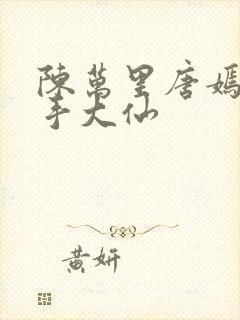 陳萬里唐嫣
手大仙
黄妍